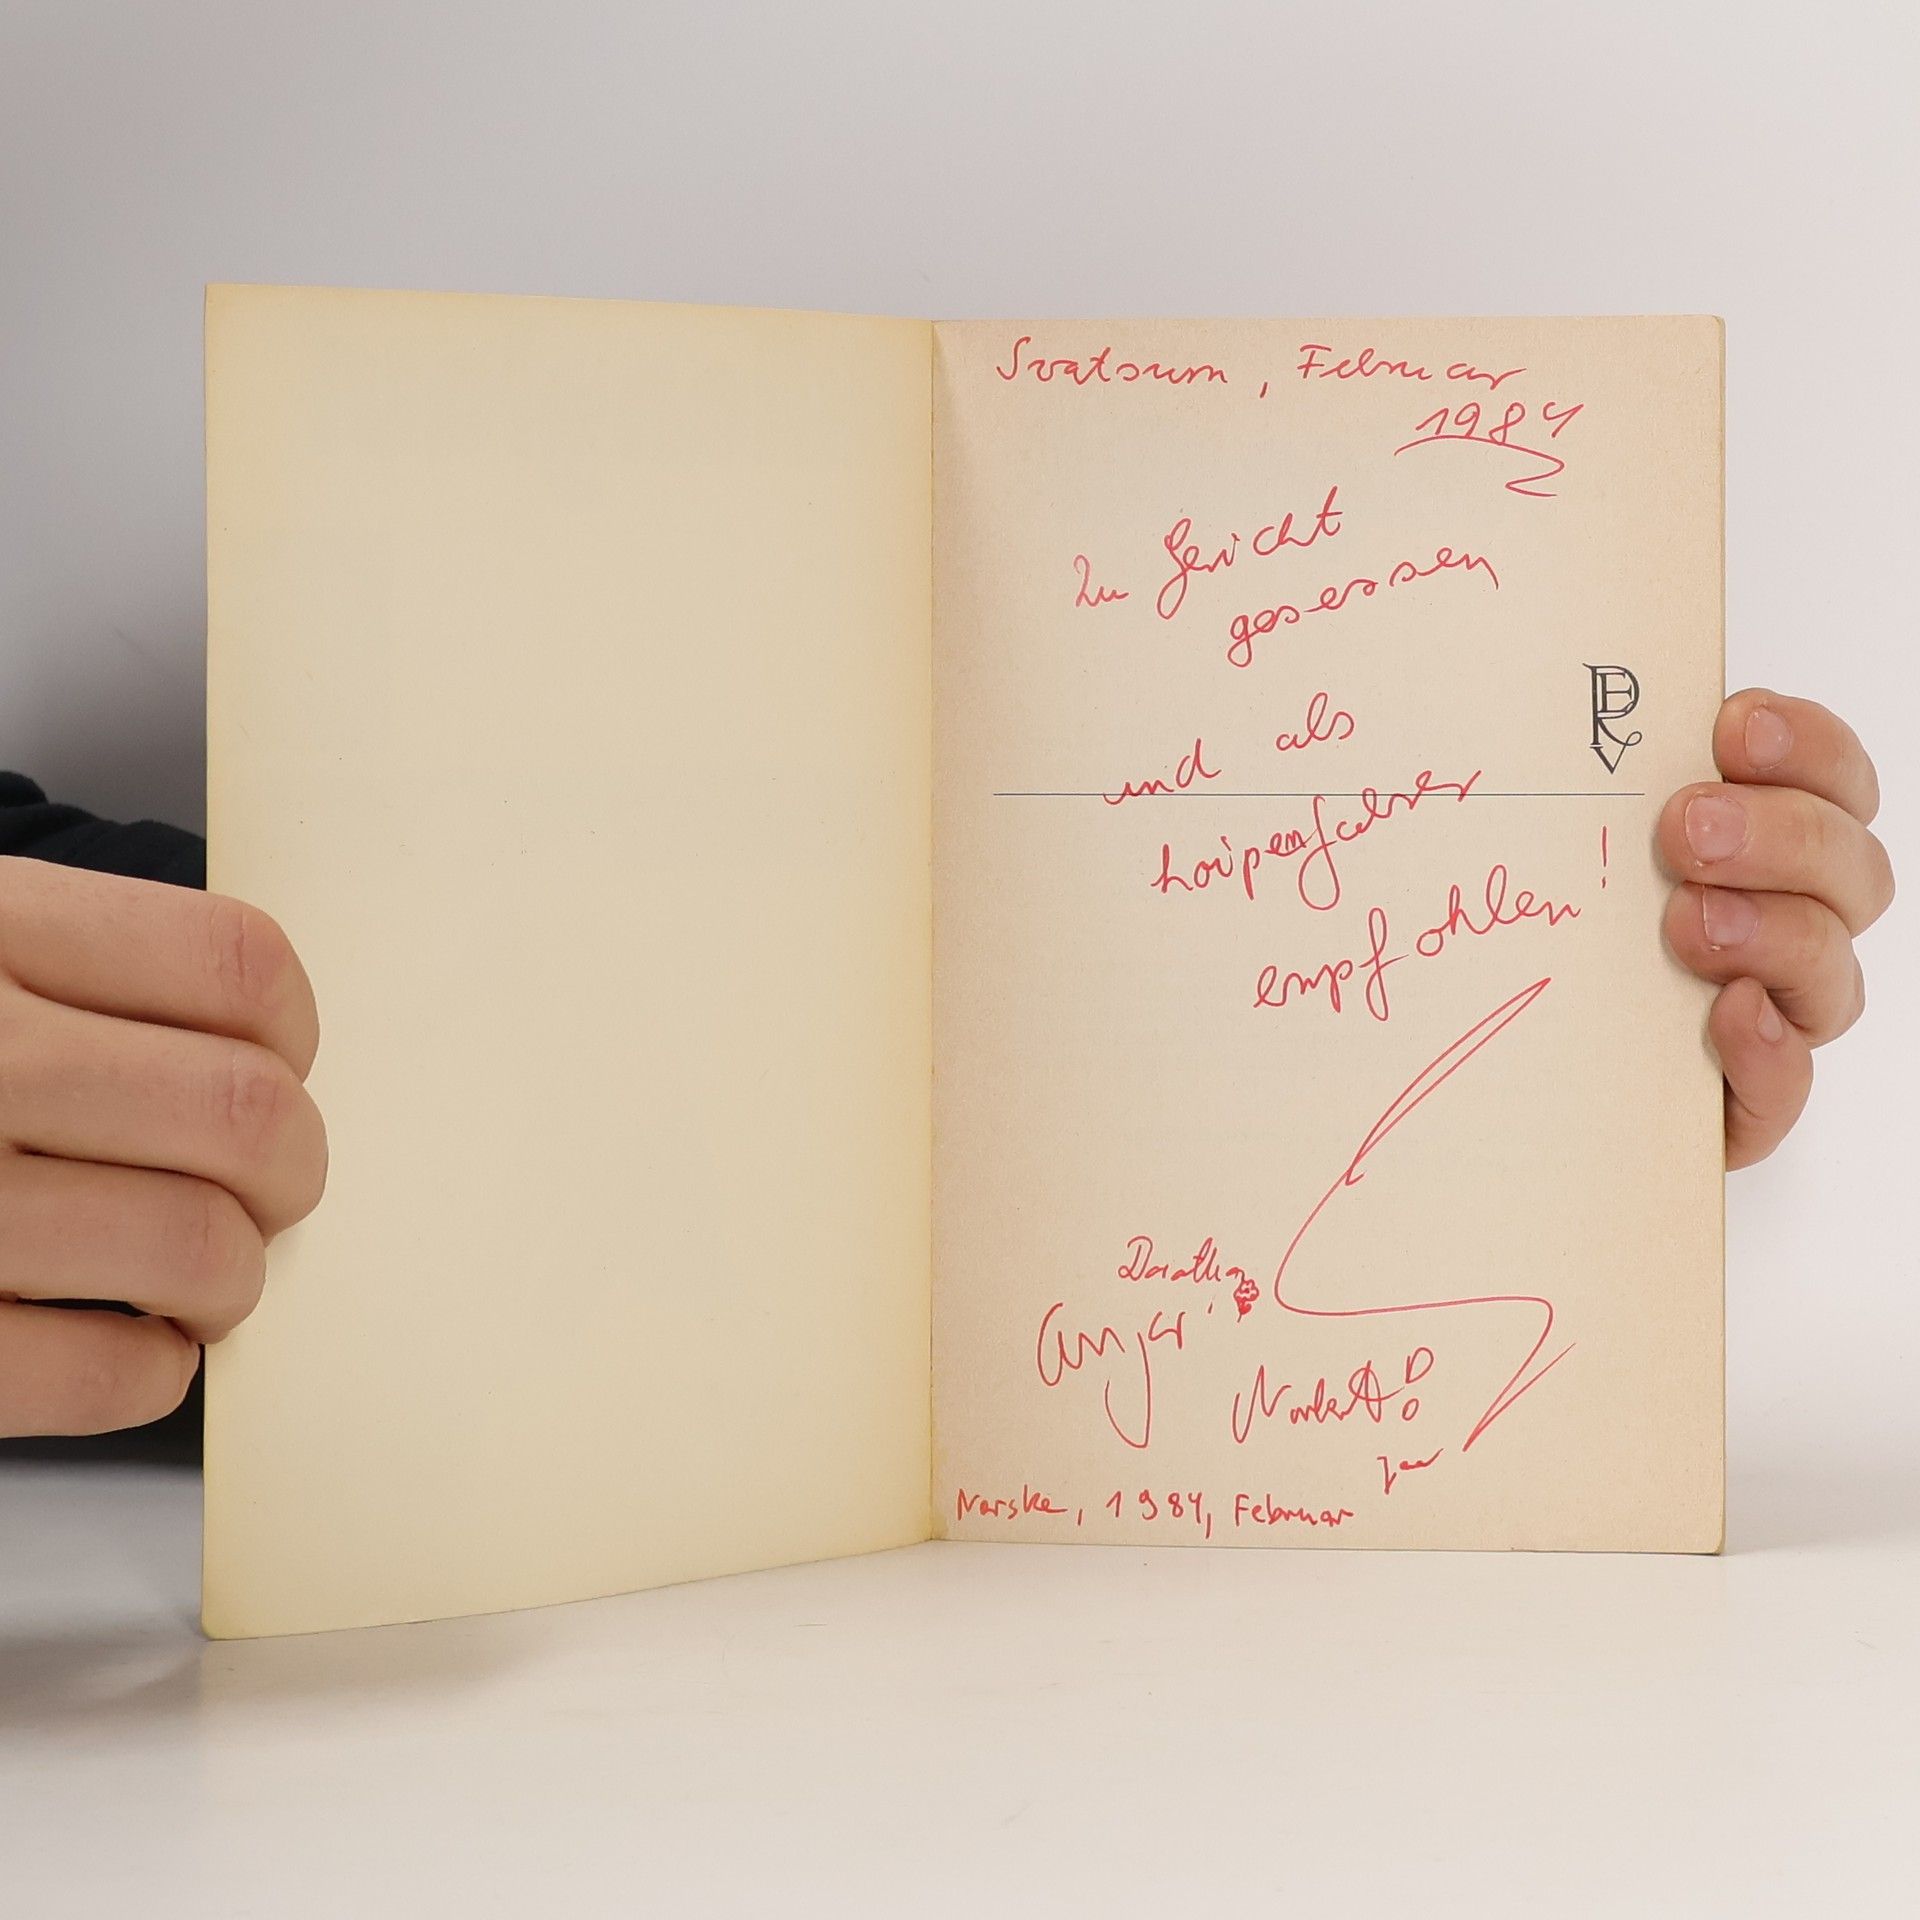 Svatsum, Februar
1984
zu Gericht
gesessen
und als
Loipenfahrer
empfohlen!
Dorothea
Anja
Norbert
Norske, 1984, Februar